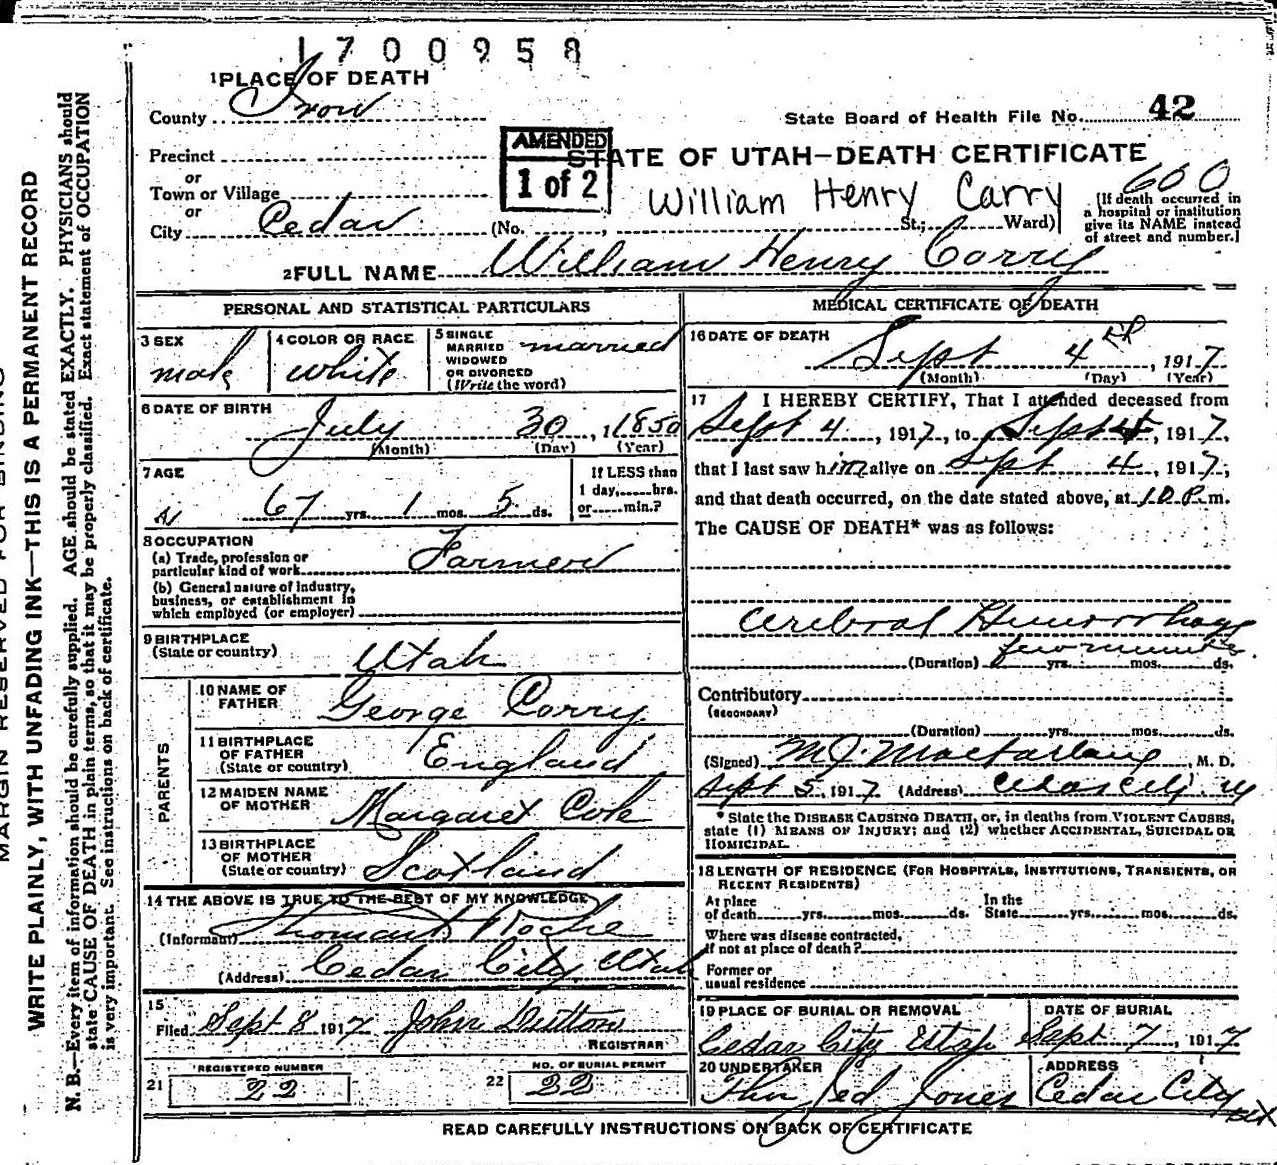 1700958
1 PLACE OF DEATH
County Iron
State Board of Health File No. 42
AMENDED
1 of 2
STATE OF UTAH—DEATH CERTIFICATE
Precinct
or
Town or Village
or
City Cedar
William Henry Carry
600
(No. , St.; Ward)
[If death occurred in
a hospital or institution
give its NAME instead
of street and number.]
2 FULL NAME William Henry Corry
PERSONAL AND STATISTICAL PARTICULARS
3 SEX
male
4 COLOR OR RACE
white
5 SINGLE
MARRIED
WIDOWED
OR DIVORCED
(Write the word)
married
6 DATE OF BIRTH
July 30, 1850
(Month) (Day) (Year)
7 AGE
67 yrs. 1 mos. 5 ds.
If LESS than
1 day, hrs.
or min.?
8 OCCUPATION
(a) Trade, profession or
particular kind of work Farmer
(b) General nature of industry,
business, or establishment in
which employed (or employer)
9 BIRTHPLACE
(State or country) Utah
PARENTS
10 NAME OF
FATHER George Corry
11 BIRTHPLACE
OF FATHER
(State or country) England
12 MAIDEN NAME
OF MOTHER Margaret
13 BIRTHPLACE
OF MOTHER
(State or country) Scotland
14 THE ABOVE IS TRUE TO THE BEST OF MY KNOWLEDGE
(Informant)
(Address) Cedar City Utah
15
Filed Sept 8 1917 John
REGISTRAR
REGISTERED NUMBER
21 22
NO. OF BURIAL PERMIT
22 22
MEDICAL CERTIFICATE OF DEATH
16 DATE OF DEATH
Sept 4, 1917
(Month) (Day) (Year)
17 I HEREBY CERTIFY, That I attended deceased from
Sept 4, 1917, to Sept 4, 1917,
that I last saw him alive on Sept 4, 1917,
and that death occurred, on the date stated above, at 10 P.m.
The CAUSE OF DEATH* was as follows:
Cerebral Hemorrhage
few minutes
(Duration) yrs. mos. ds.
Contributory
(SECONDARY)
(Duration) yrs. mos. ds.
(Signed) M.J. Macfarlane, M. D.
Sept 5, 1917 (Address) Cedar City, U
* State the DISEASE CAUSING DEATH, or, in deaths from VIOLENT CAUSES,
state (1) MEANS OF INJURY; and (2) whether ACCIDENTAL, SUICIDAL OR
HOMICIDAL.
18 LENGTH OF RESIDENCE (FOR HOSPITALS, INSTITUTIONS, TRANSIENTS, OR
RECENT RESIDENTS)
At place
of death yrs. mos. ds.
In the
State yrs. mos. ds.
Where was disease contracted,
if not at place of death?
Former or
usual residence
19 PLACE OF BURIAL OR REMOVAL
Cedar City Utah
DATE OF BURIAL
Sept 7, 1917
20 UNDERTAKER
Thos Jed Jones
ADDRESS
Cedar City
READ CAREFULLY INSTRUCTIONS ON BACK OF CERTIFICATE
MARGIN RESERVED FOR BINDING
WRITE PLAINLY, WITH UNFADING INK—THIS IS A PERMANENT RECORD
N. B.—Every item of information should be carefully supplied. AGE should be stated EXACTLY. PHYSICIANS should
state CAUSE OF DEATH in plain terms, so that it may be properly classified. Exact statement of OCCUPATION
is very important. See instructions on back of certificate.